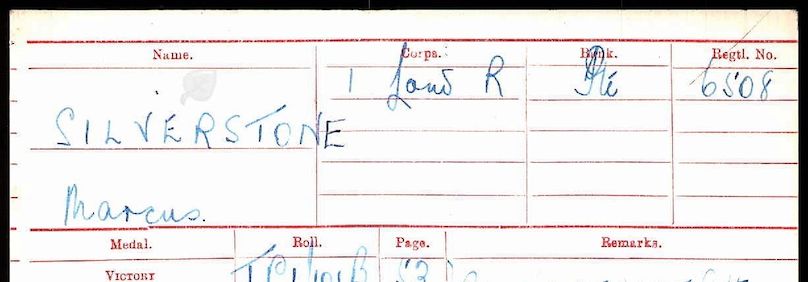 Name. Corps. Rank. Regtl. No.
1 Lond R Pte 6508
SILVERSTONE
Marcus.
Medal. Roll. Page. Remarks.
VICTORY 53